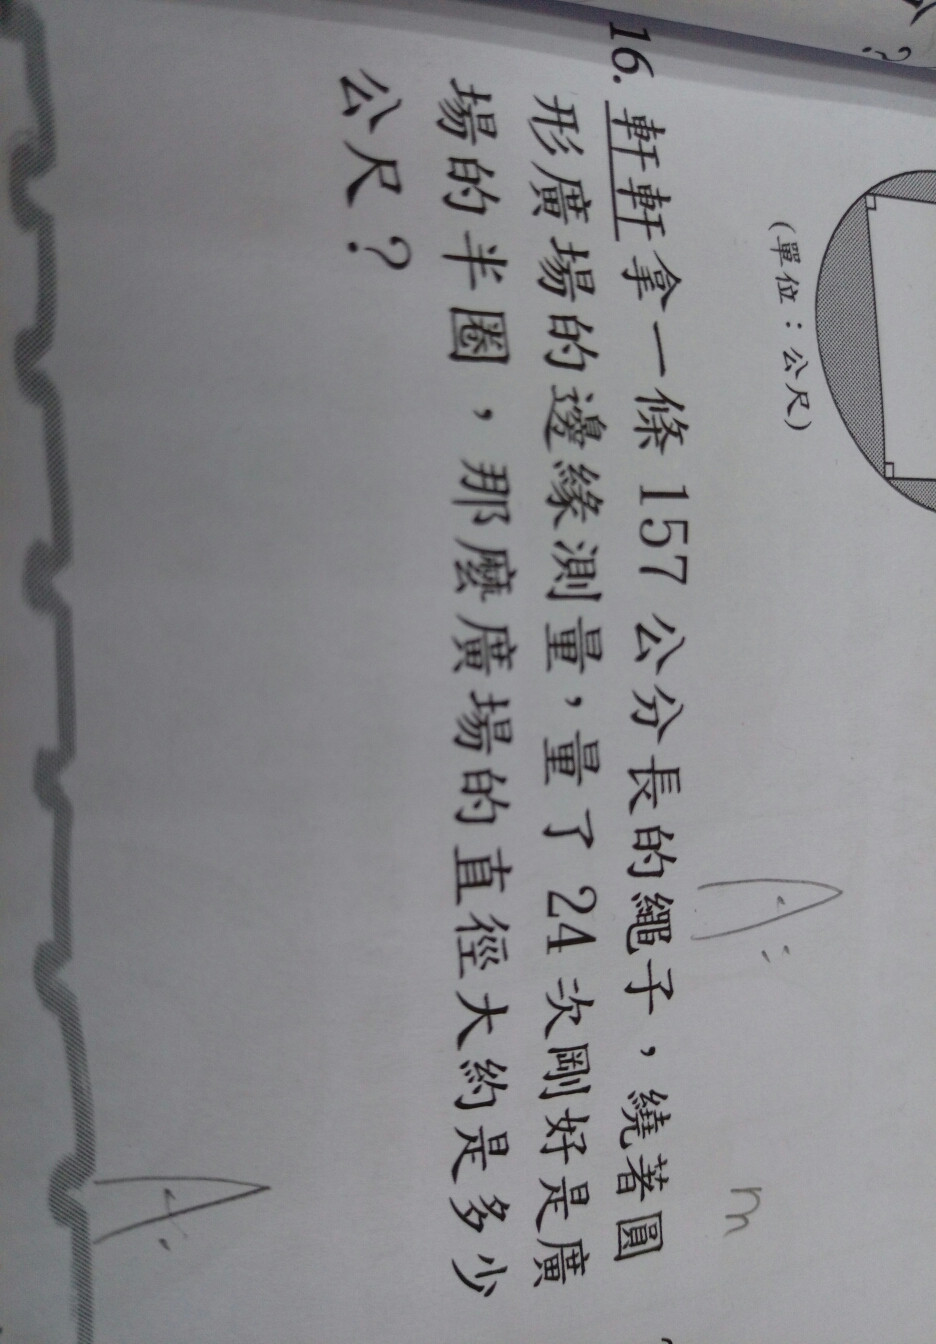 (單位：公尺)
m
A:
16. 軒軒拿一條 157 公分長的繩子，繞著圓
形廣場的邊緣測量，量了 24 次剛好是廣
場的半圈，那麼廣場的直徑大約是多少
公尺？
A: